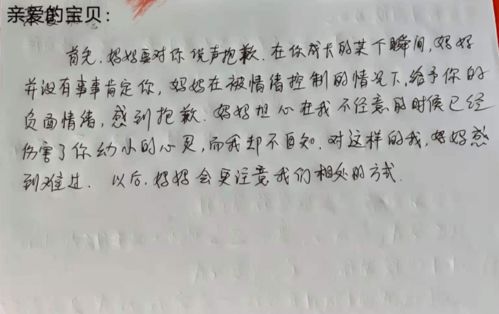 亲爱的宝贝：
首先，妈妈要对你说声抱歉．在你成长的某个瞬间，妈妈
并没有事事肯定你，妈妈在被情绪控制的情况下，给予你的
负面情绪，感到抱歉．妈妈担心在我不经意的时候已经
伤害了你幼小的心灵，而我却不自知．对这样的我，妈妈感
到难过．以后，妈妈会更注意我们相处的方式．